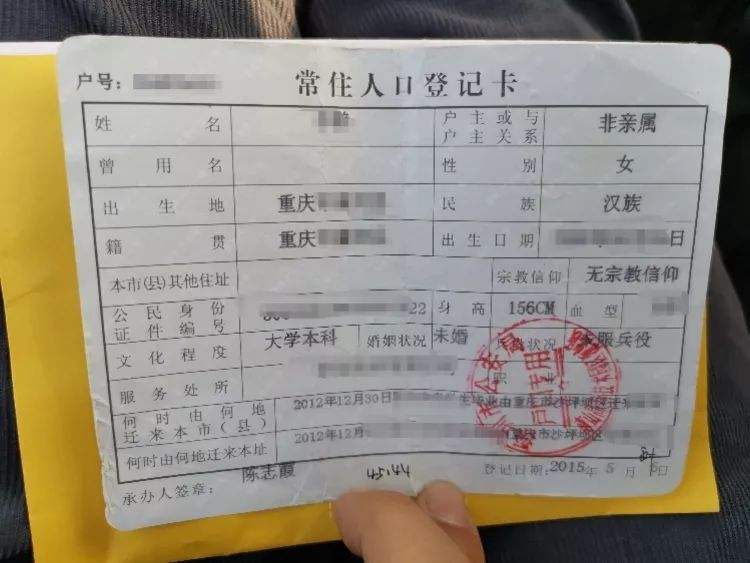 户号：
常住人口登记卡
姓名 户主或与户主关系 非亲属
曾用名 性别 女
出生地 重庆 民族 汉族
籍贯 重庆 出生日期 日
本市(县)其他住址 宗教信仰 无宗教信仰
公民身份证件编号 22 身高 156CM 血型
文化程度 大学本科 婚姻状况 未婚 兵役状况 服兵役
服务处所 职
何时由何地迁来本市(县) 2012年12月30日 毕业由重庆市沙坪坝区迁来
何时由何地迁来本址 2012年12月 重庆市沙坪坝区
承办人签章： 陈志霞 45.44 登记日期：2015年5月 日
户口专用